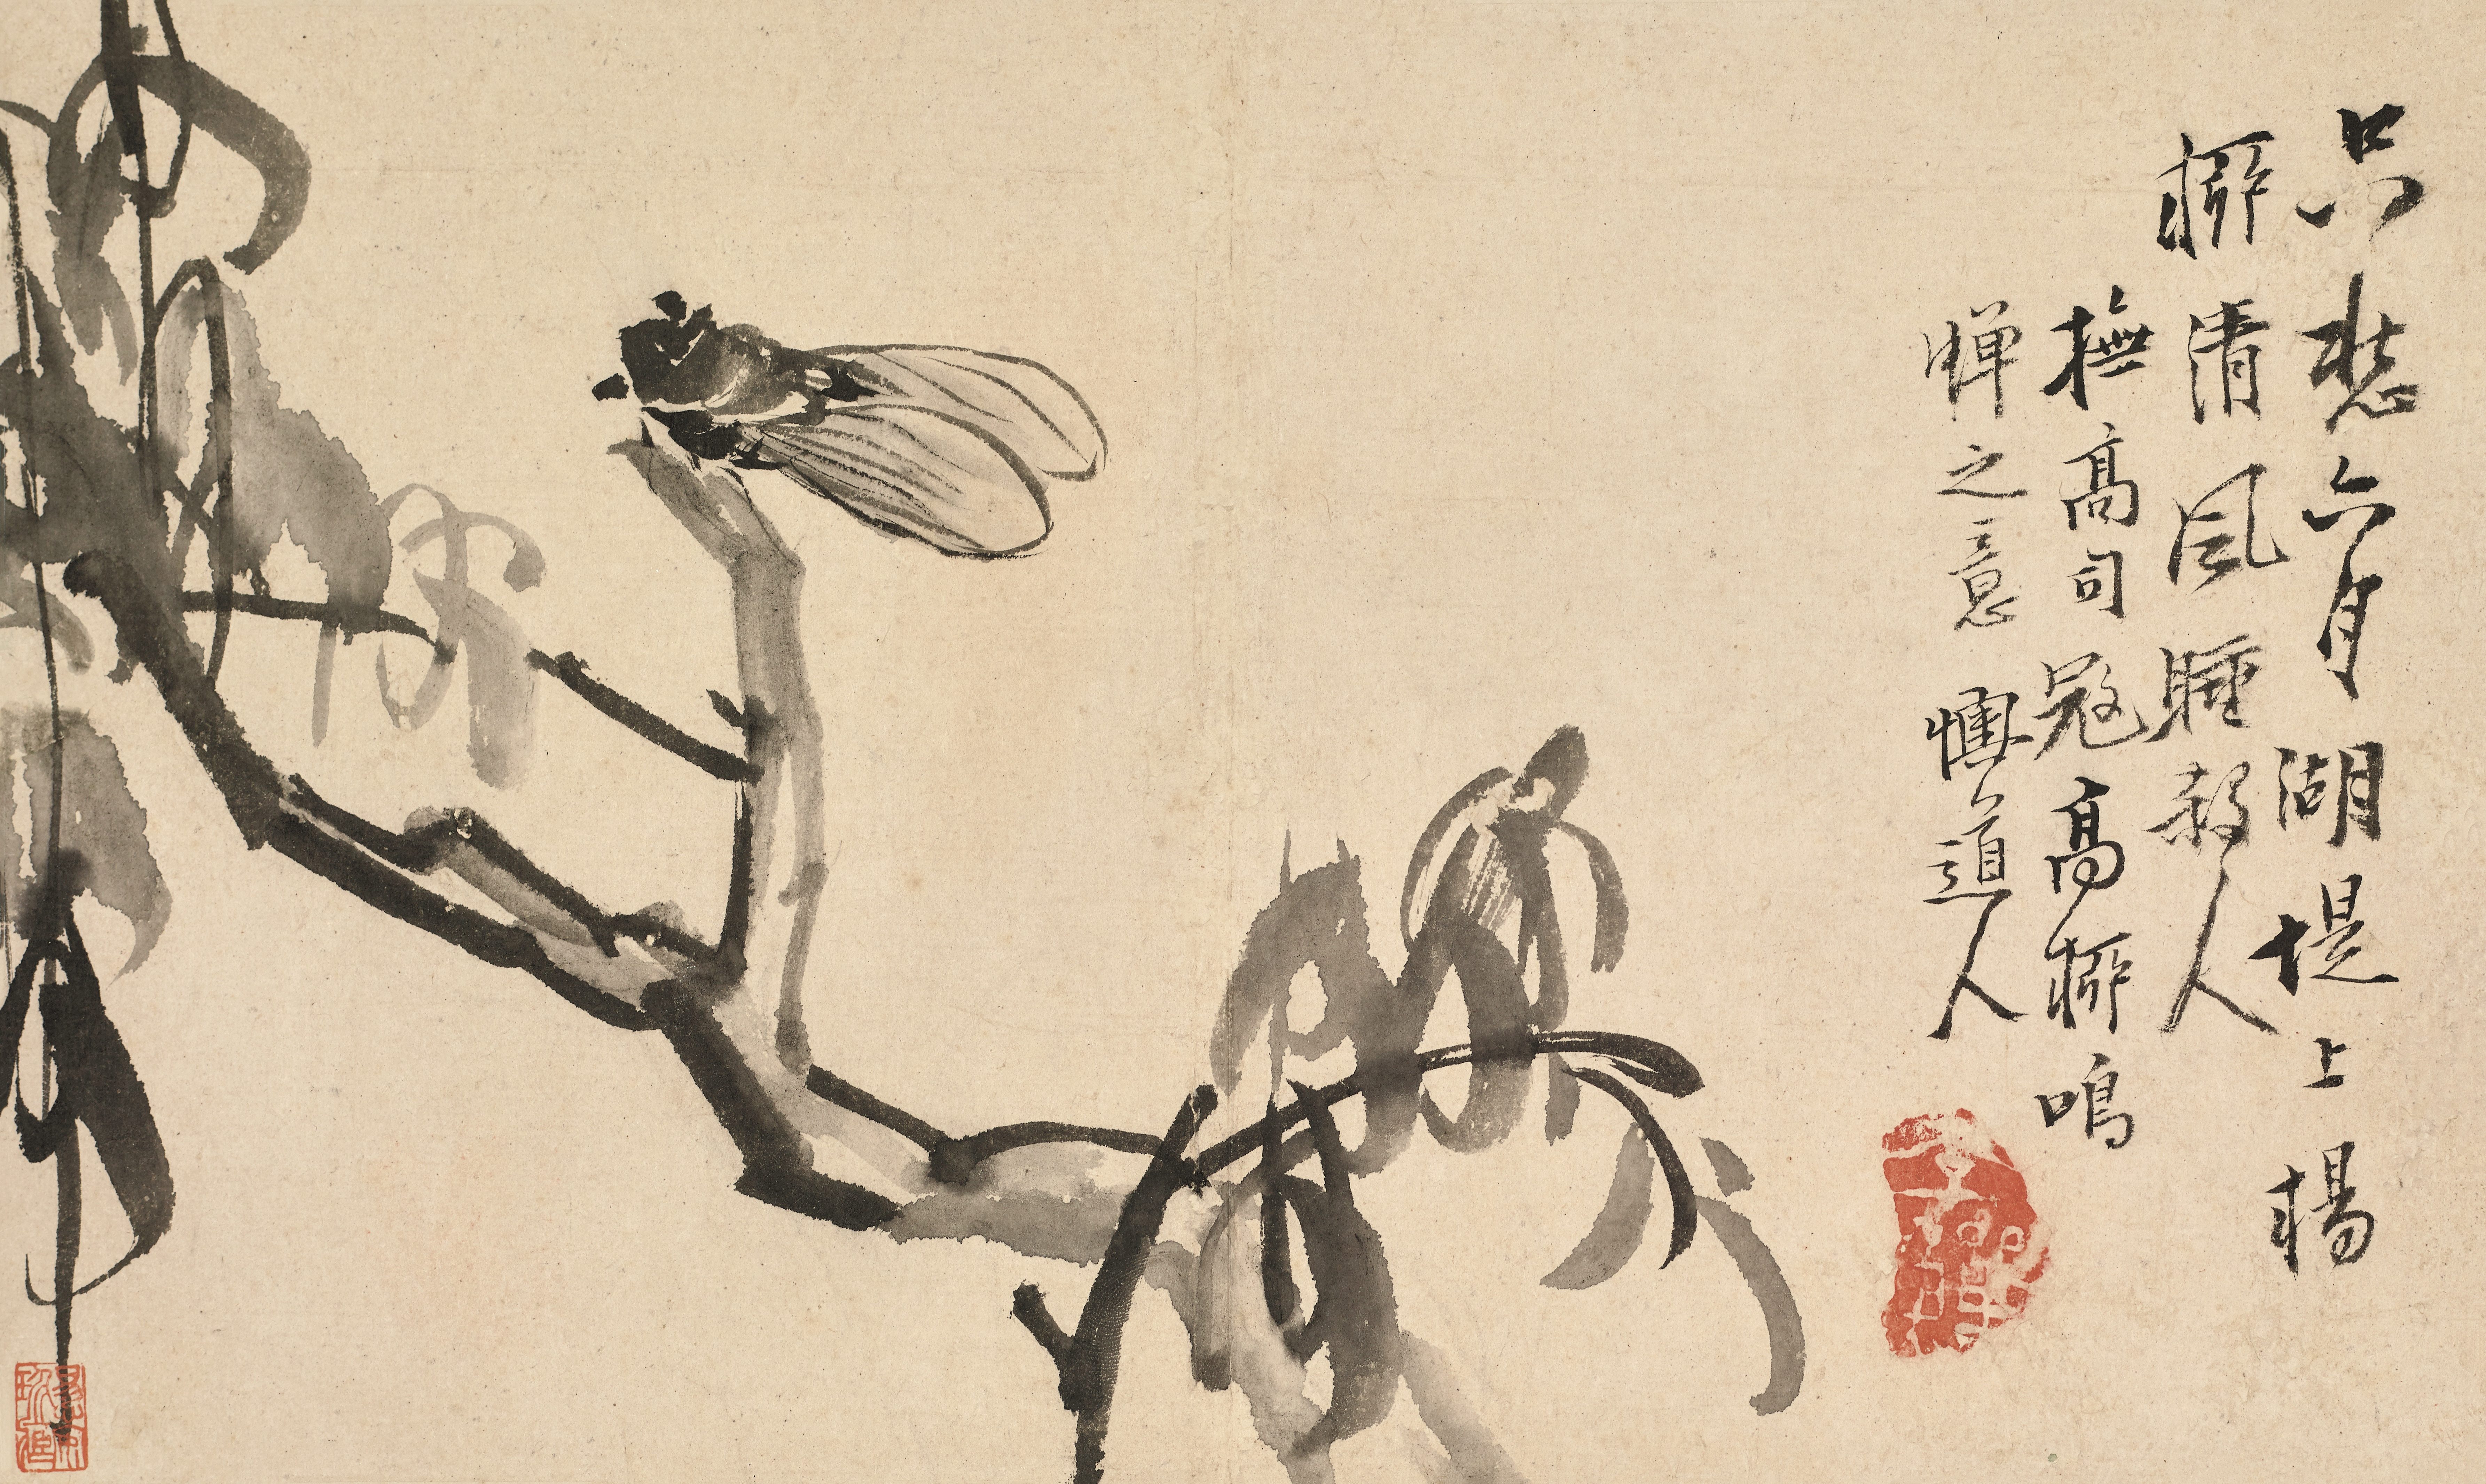 只愁六月湖堤上楊
柳清風睡殺人
橅高司寇高柳鳴
蟬之意 懊道人